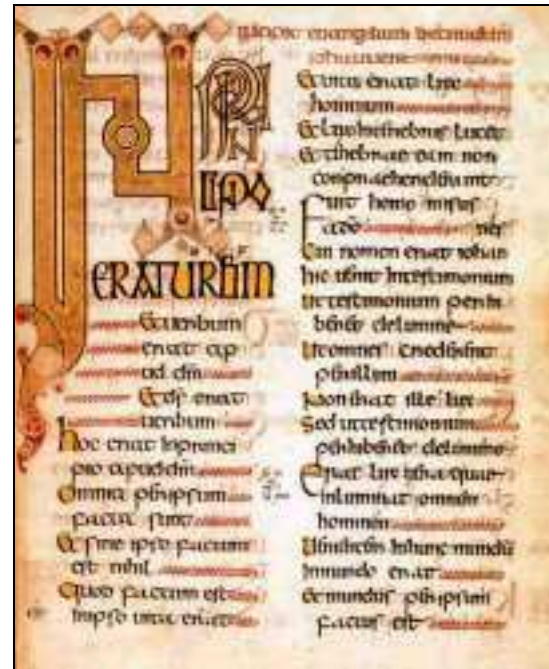 IN
PRIN
CIPIO
ERAT UERBUM
Et uerbum
erat ap
ud dm
Et ds erat
uerbum
hoc erat inprinci
pio apud dm
Omnia p ipsum
facta sunt
Et sine ipso factum
est nihil
Quod factum est
In ipso uita erat
Et uita erat lux
hominum
Et lux in tenebris lucet
Et tenebrae eam non
conpraehenderunt
Fuit homo misus
a do
Cui nomen erat iohan
nes
hic uenit in testimonium
Ut testimonium perhi
beret de lumine
Ut omnes crederent
p illum
Non erat ille lux
Sed ut testimonium
perhiberet de lumine
Erat lux uera quae
inluminat omnem
hominem
Uenientem in hunc mundū
In mundo erat
Et mundus p ipsum
factus est